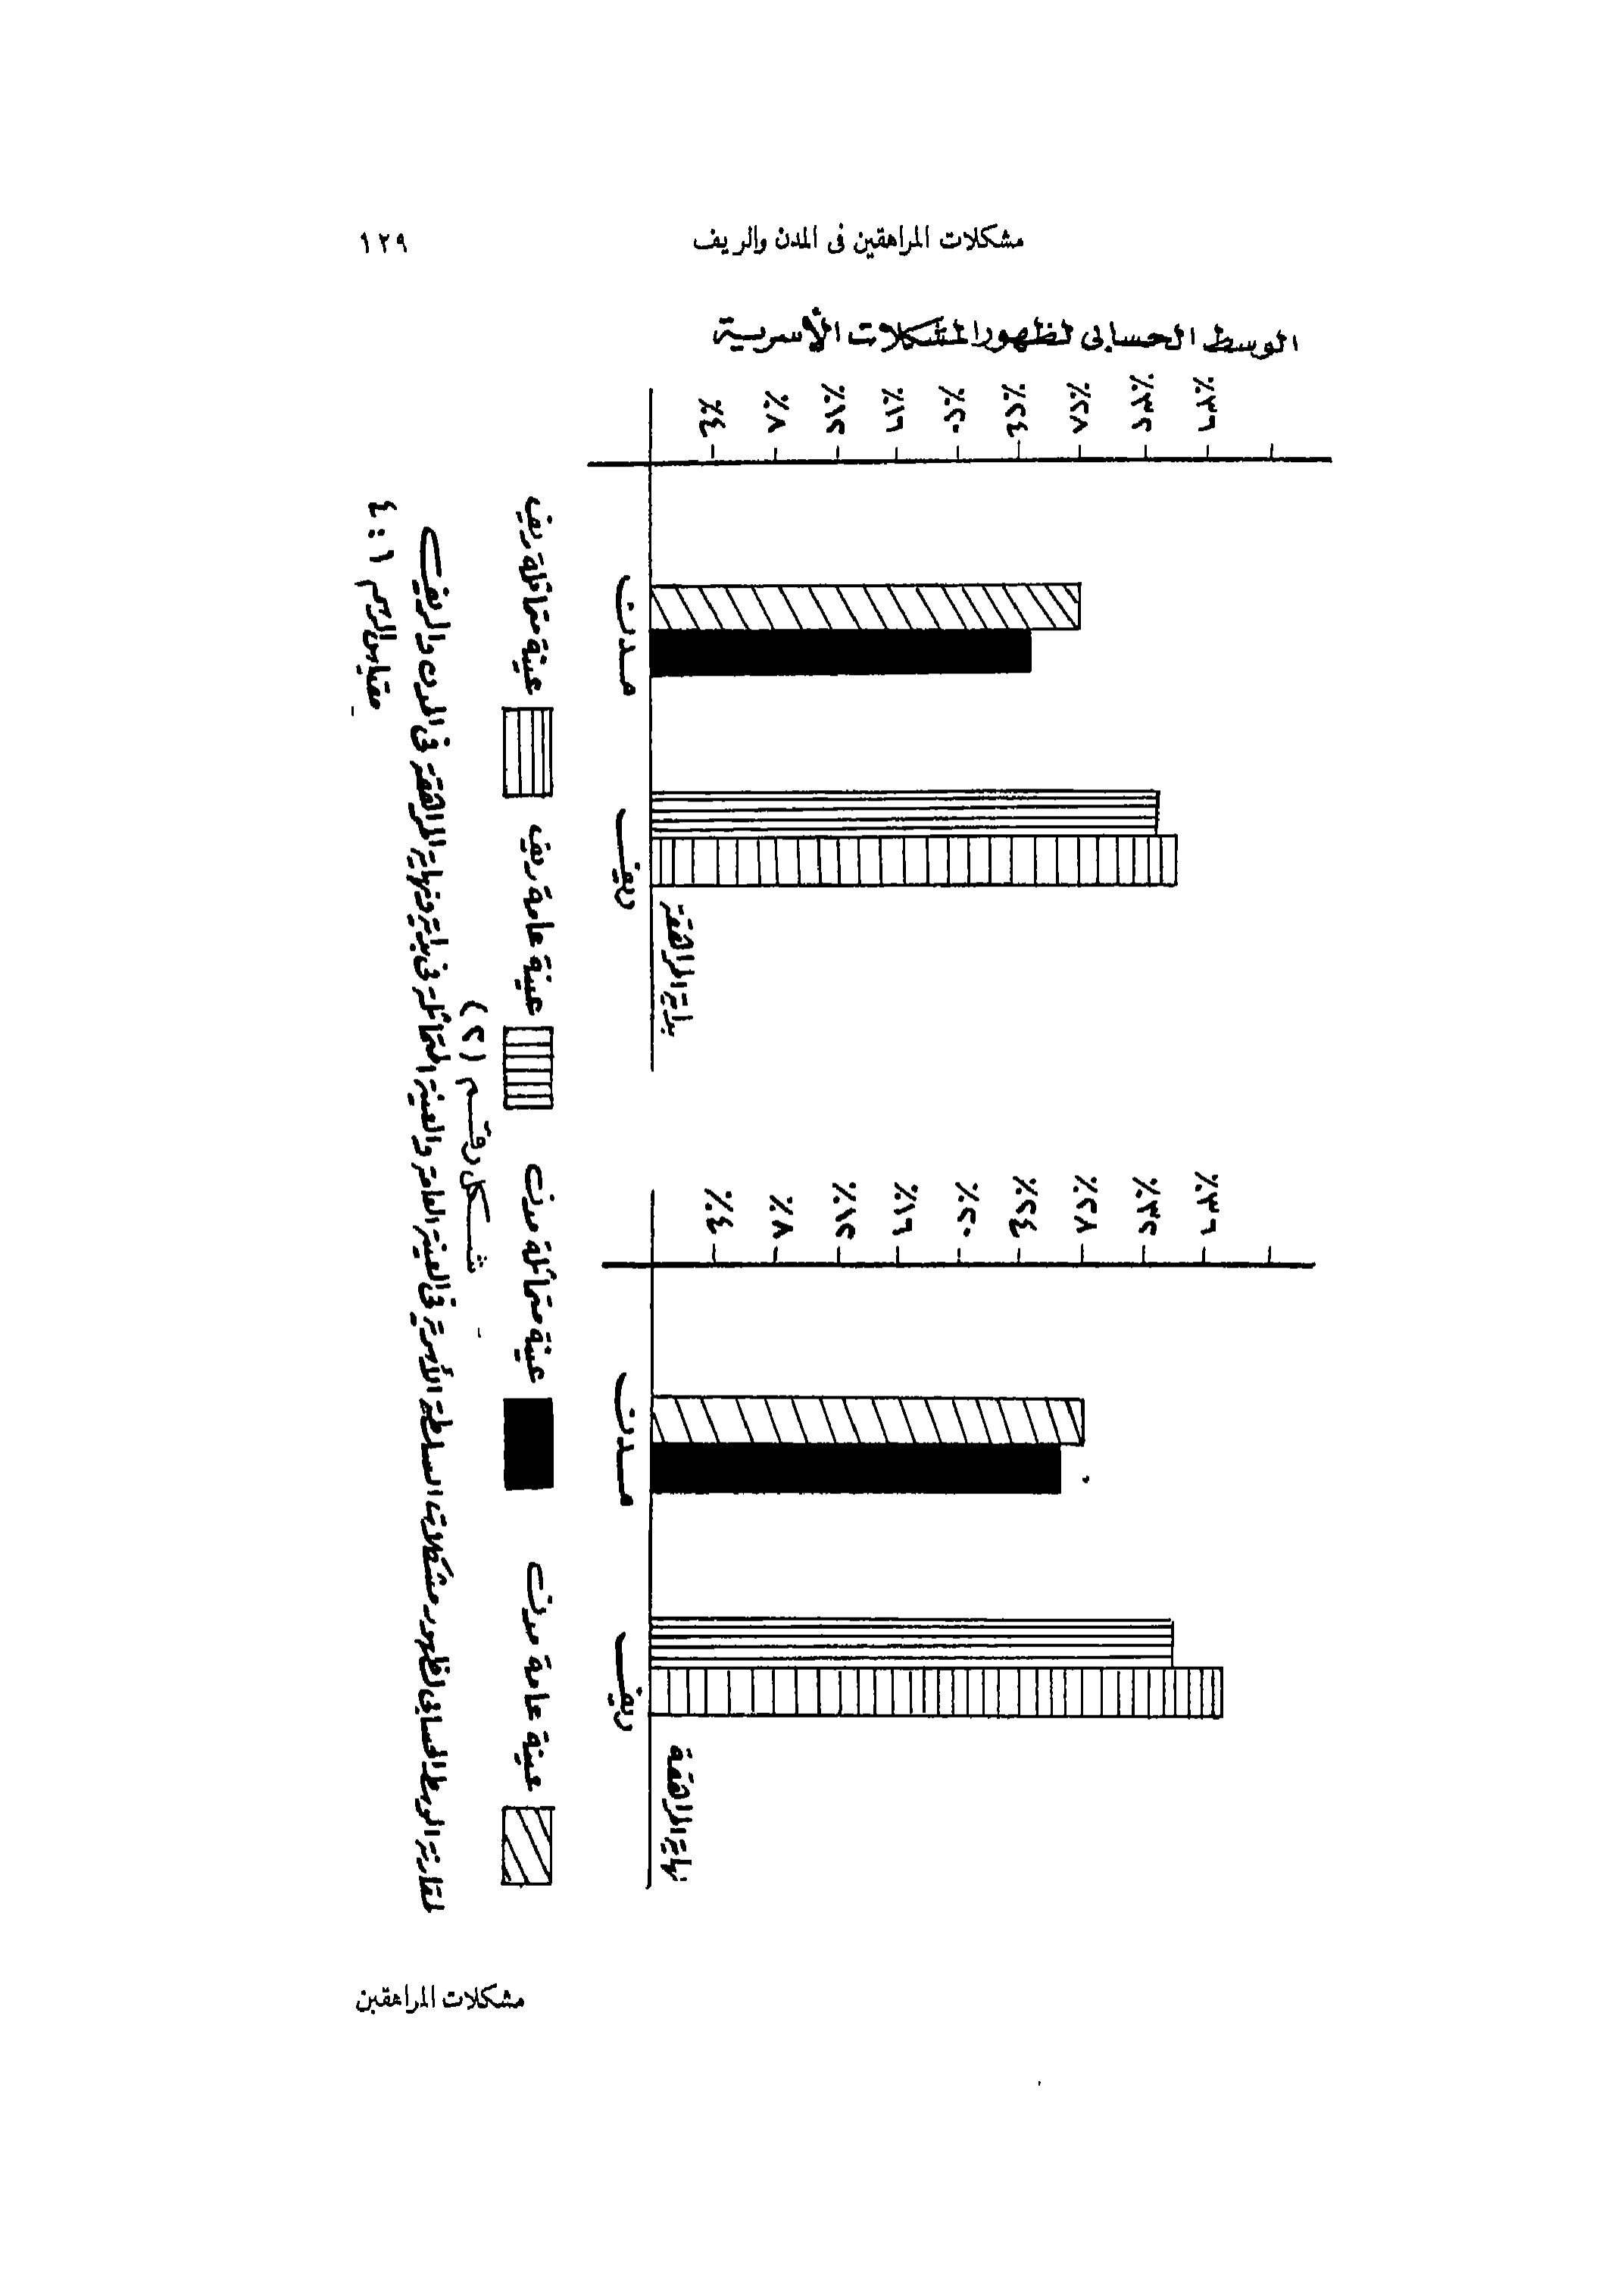 مشكلات المراهقين فى المدن والريف
١٢٩
الوسط الحسابى لظهور المشكلات الأسرية
٪٤
٪٨
٪١٢
٪١٦
٪٢٠
٪٢٤
٪٢٨
٪٣٢
٪٣٦
مدن
ريف
بداية المراهقة
٪٤
٪٨
٪١٢
٪١٦
٪٢٠
٪٢٤
٪٢٨
٪٣٢
٪٣٦
مدن
ريف
نهاية المراهقة
عينة عامة مدن
عينة متماثلة مدن
عينة عامة ريف
عينة متماثلة ريف
شكل رقم (٢)
مقارنة الوسط الحسابى لظهور مشكلات السلطة الأسرية فى العينة العامة والعينة المتماثلة فى بداية ونهاية المراهقة فى المدن والريف
مقياس الرسم ١ : ٤
مشكلات المراهقين